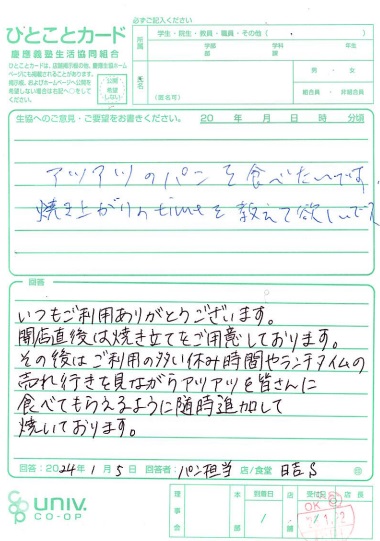 必ずご記入ください
ひとことカード
慶應義塾生活協同組合
ひとことカードは、店舗掲示板の他、慶應生協ホーム
ページにも掲載されることがあります。
掲示板、およびホームページへ公開を
希望しない場合は右記へ○をして
ください。
公開
希望
しない
所属
学生・院生・教員・職員・その他( )
学部 学科 年生
氏名
(匿名可)
男・女
組合員・非組合員
生協へのご意見・ご要望をお書きください。 20 年 月 日 時 分頃
アツアツのパンを食べたいです。
焼き上がりのtimeを教えて欲しいです
回答
いつもご利用ありがとうございます。
開店直後は焼き立てをご用意しております。
その後はご利用の多い休み時間やランチタイムの
売れ行きを見ながらアツアツを皆さんに
食べてもらえるように随時追加して
焼いております。
回答:2024年1月5日 回答者:パン担当 店/食堂 日吉S ㊞
UNIV.
CO-OP
理事会
本部
到着日
/
本店
受付
/
店長
OK